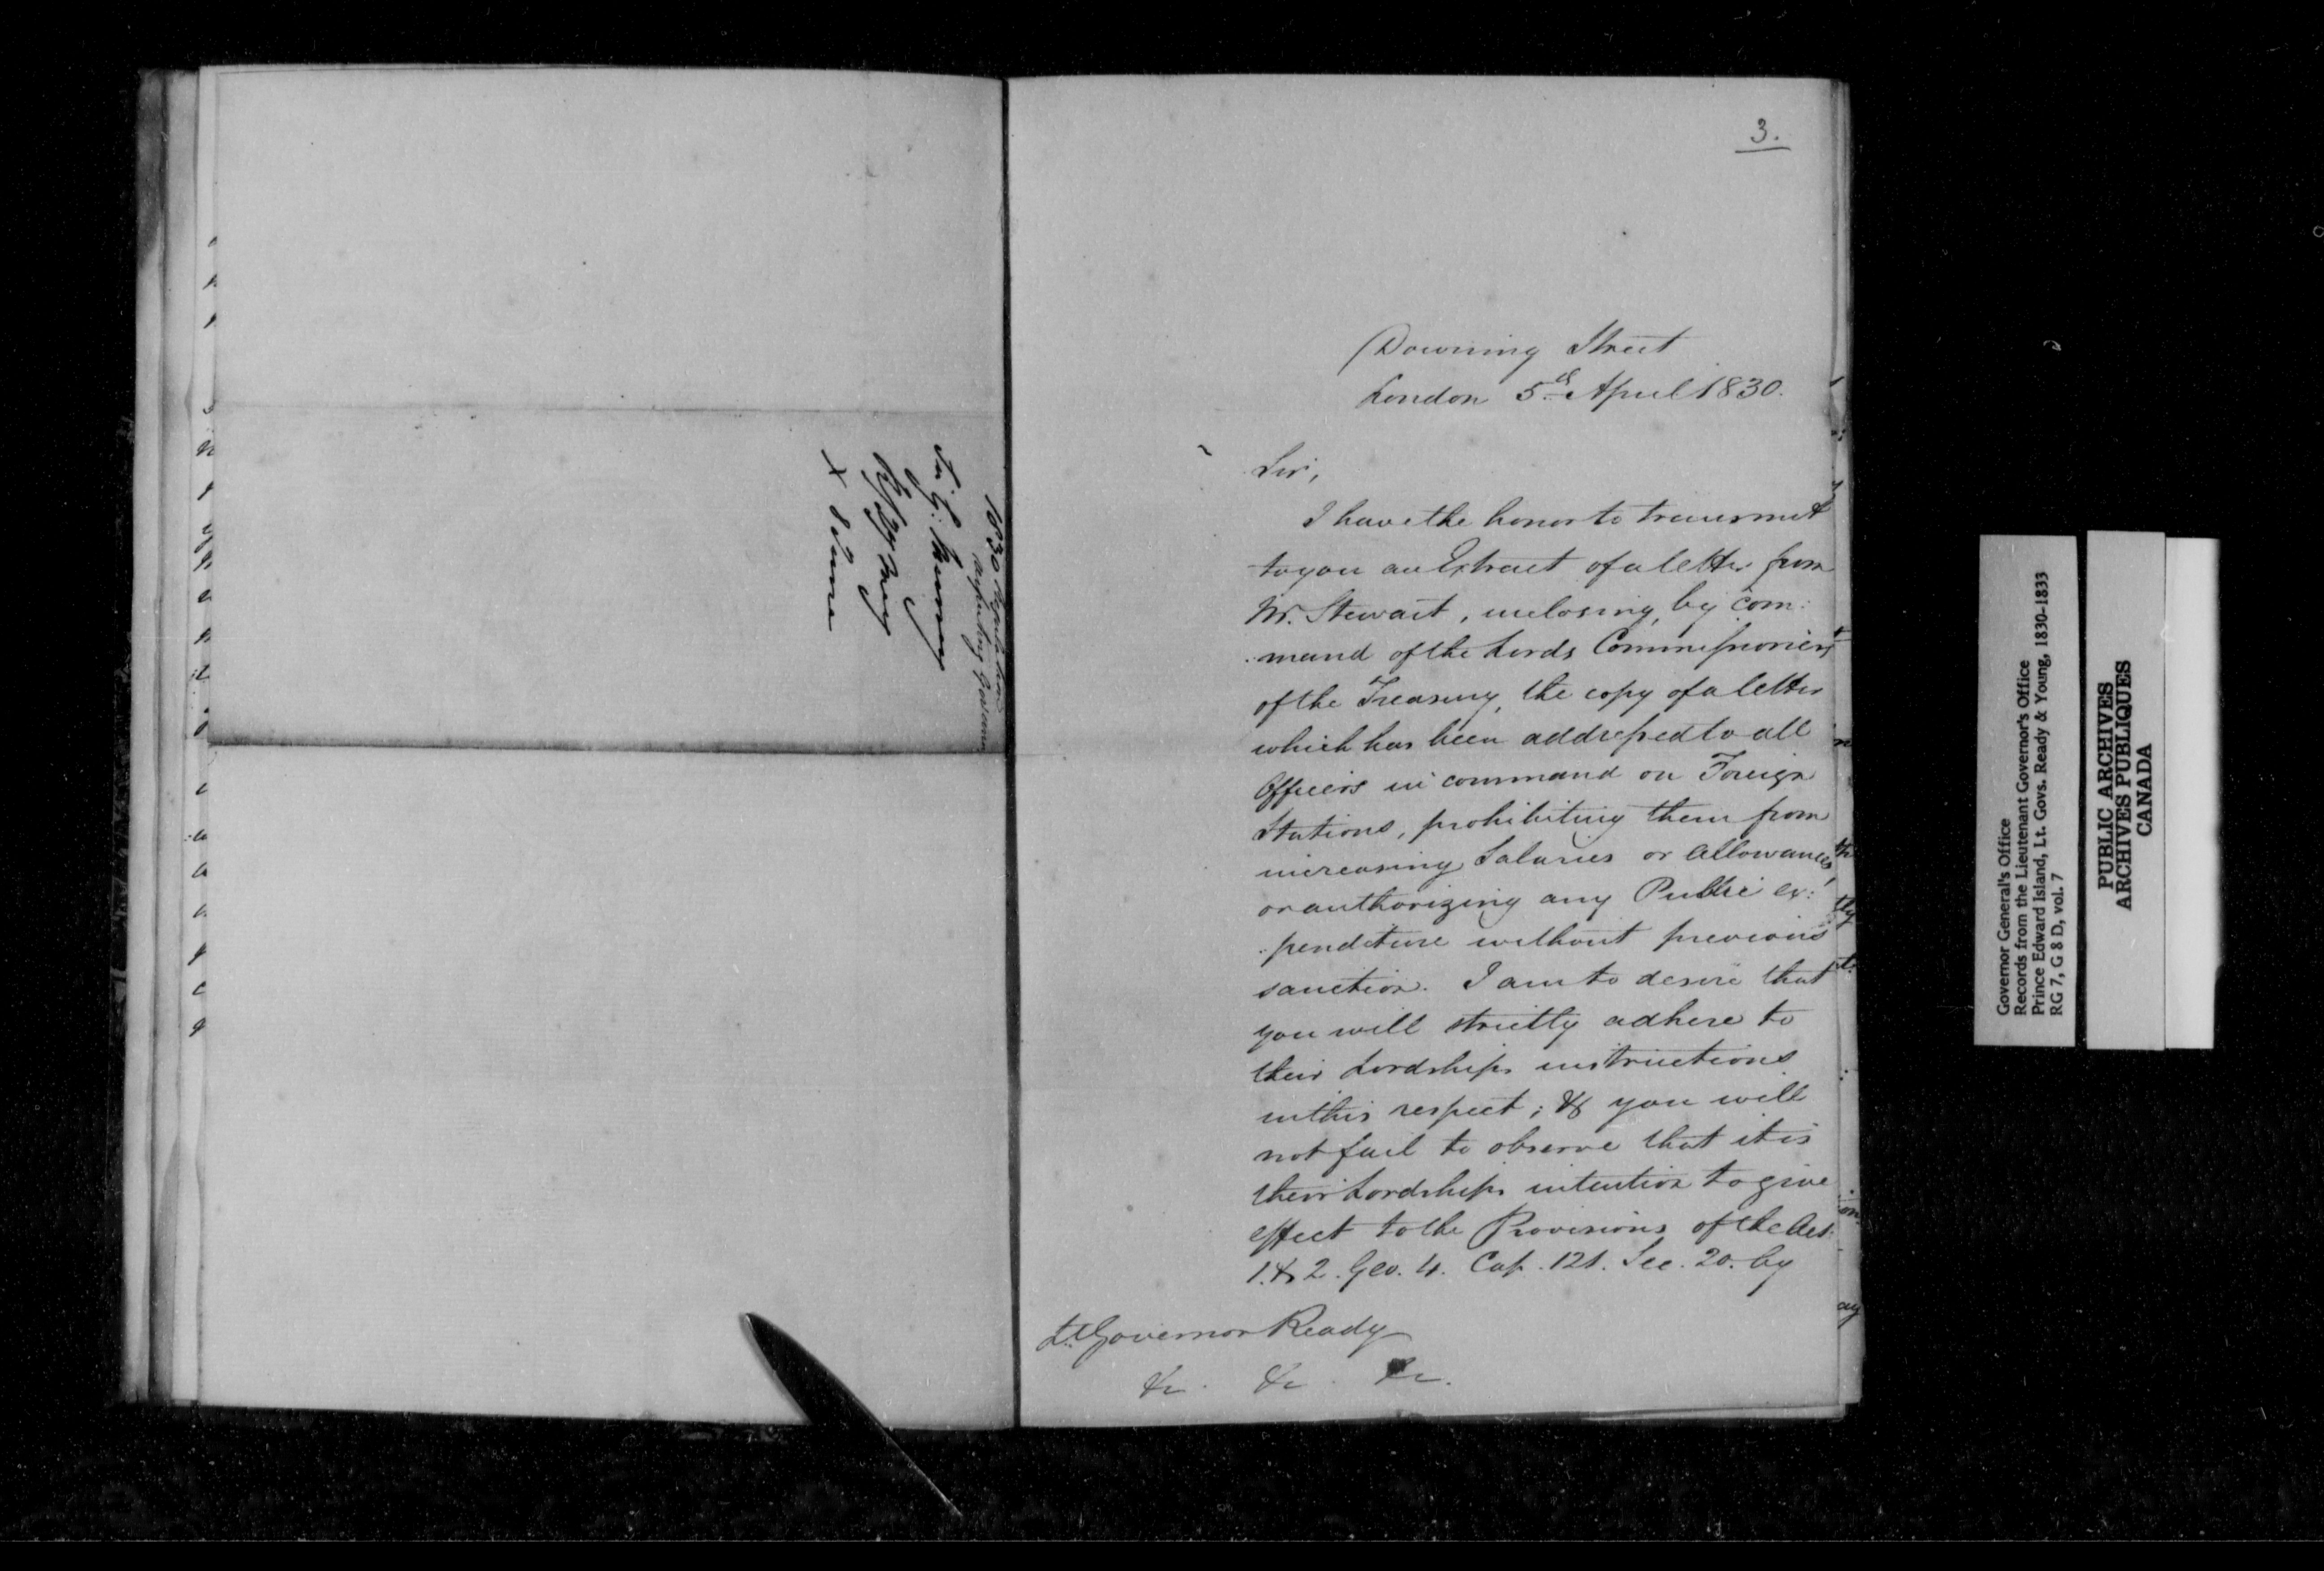 Sir G. Murray
8 June
3.
Downing Street
London 5th April 1830.
Sir,
I have the honor to transmit
to you an Extract of a letter from
Mr. Stewart, inclosing, by com:
:mand of the Lords Commissioners
of the Treasury, the copy of a letter
which has been addressed to all
Officers in command on Foreign
Stations, prohibiting them from
increasing Salaries or Allowances,
or authorizing any Public ex:
:penditure without previous
sanction. I am to desire that
you will strictly adhere to
their Lordships instructions
in this respect; & you will
not fail to observe that it is
their Lordships intention to give
effect to the Provisions of the Act
1. & 2. Geo. 4. Cap. 121. Sec. 20. by
Lt. Governor Ready
&c. &c. &c.
Governor General's Office
Records from the Lieutenant Governor's Office
Prince Edward Island, Lt. Govs. Ready & Young, 1830-1833
RG 7, G 8 D, vol. 7
PUBLIC ARCHIVES
ARCHIVES PUBLIQUES
CANADA